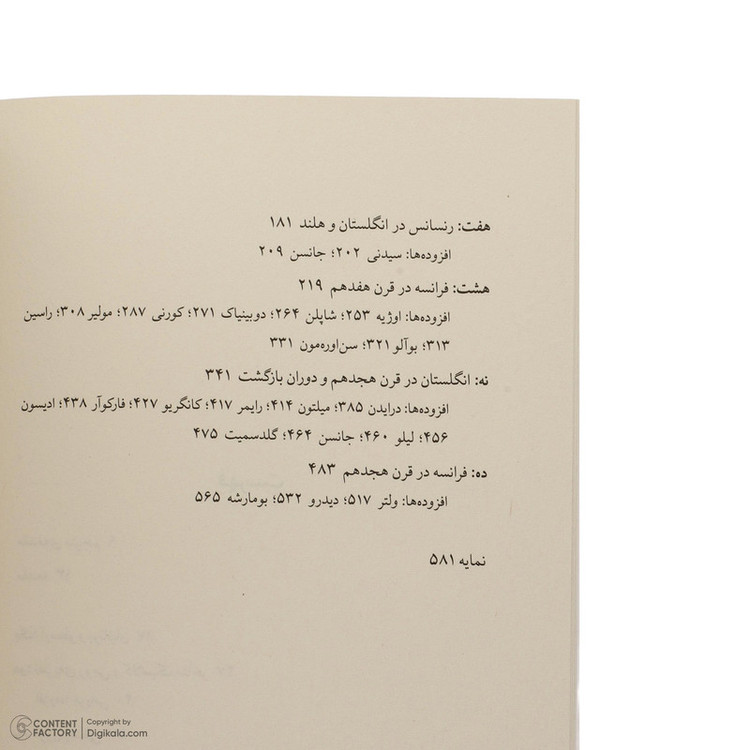 هفت: رنسانس در انگلستان و هلند ۱۸۱
افزوده‌ها: سیدنی ۲۰۲؛ جانسن ۲۰۹
هشت: فرانسه در قرن هفدهم ۲۱۹
افزوده‌ها: اوژیه ۲۵۳؛ شاپلن ۲۶۴؛ دوبینیاک ۲۷۱؛ کورنی ۲۸۷؛ مولیر ۳۰۸؛ راسین
۳۱۳؛ بوآلو ۳۲۱؛ سن‌اوره‌مون ۳۳۱
نه: انگلستان در قرن هجدهم و دوران بازگشت ۳۴۱
افزوده‌ها: درایدن ۳۸۵؛ میلتون ۴۱۴؛ رایمر ۴۱۷؛ کانگریو ۴۲۷؛ فارکوآر ۴۳۸؛ ادیسون
۴۵۶؛ لیلو ۴۶۰؛ جانسن ۴۶۴؛ گلدسمیت ۴۷۵
ده: فرانسه در قرن هجدهم ۴۸۳
افزوده‌ها: ولتر ۵۱۷؛ دیدرو ۵۳۲؛ بومارشه ۵۶۵
نمایه ۵۸۱
CONTENT FACTORY
Copyright by
Digikala.com